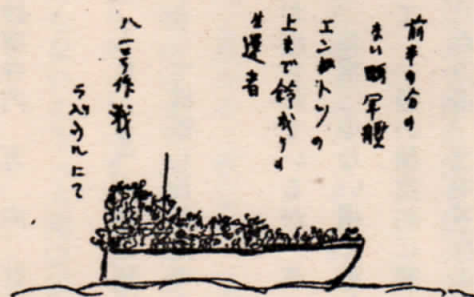 前半の分の
ない軍艦
エントツの
上まで鈴成りの
生還者
八一号作戦
ラバウルにて